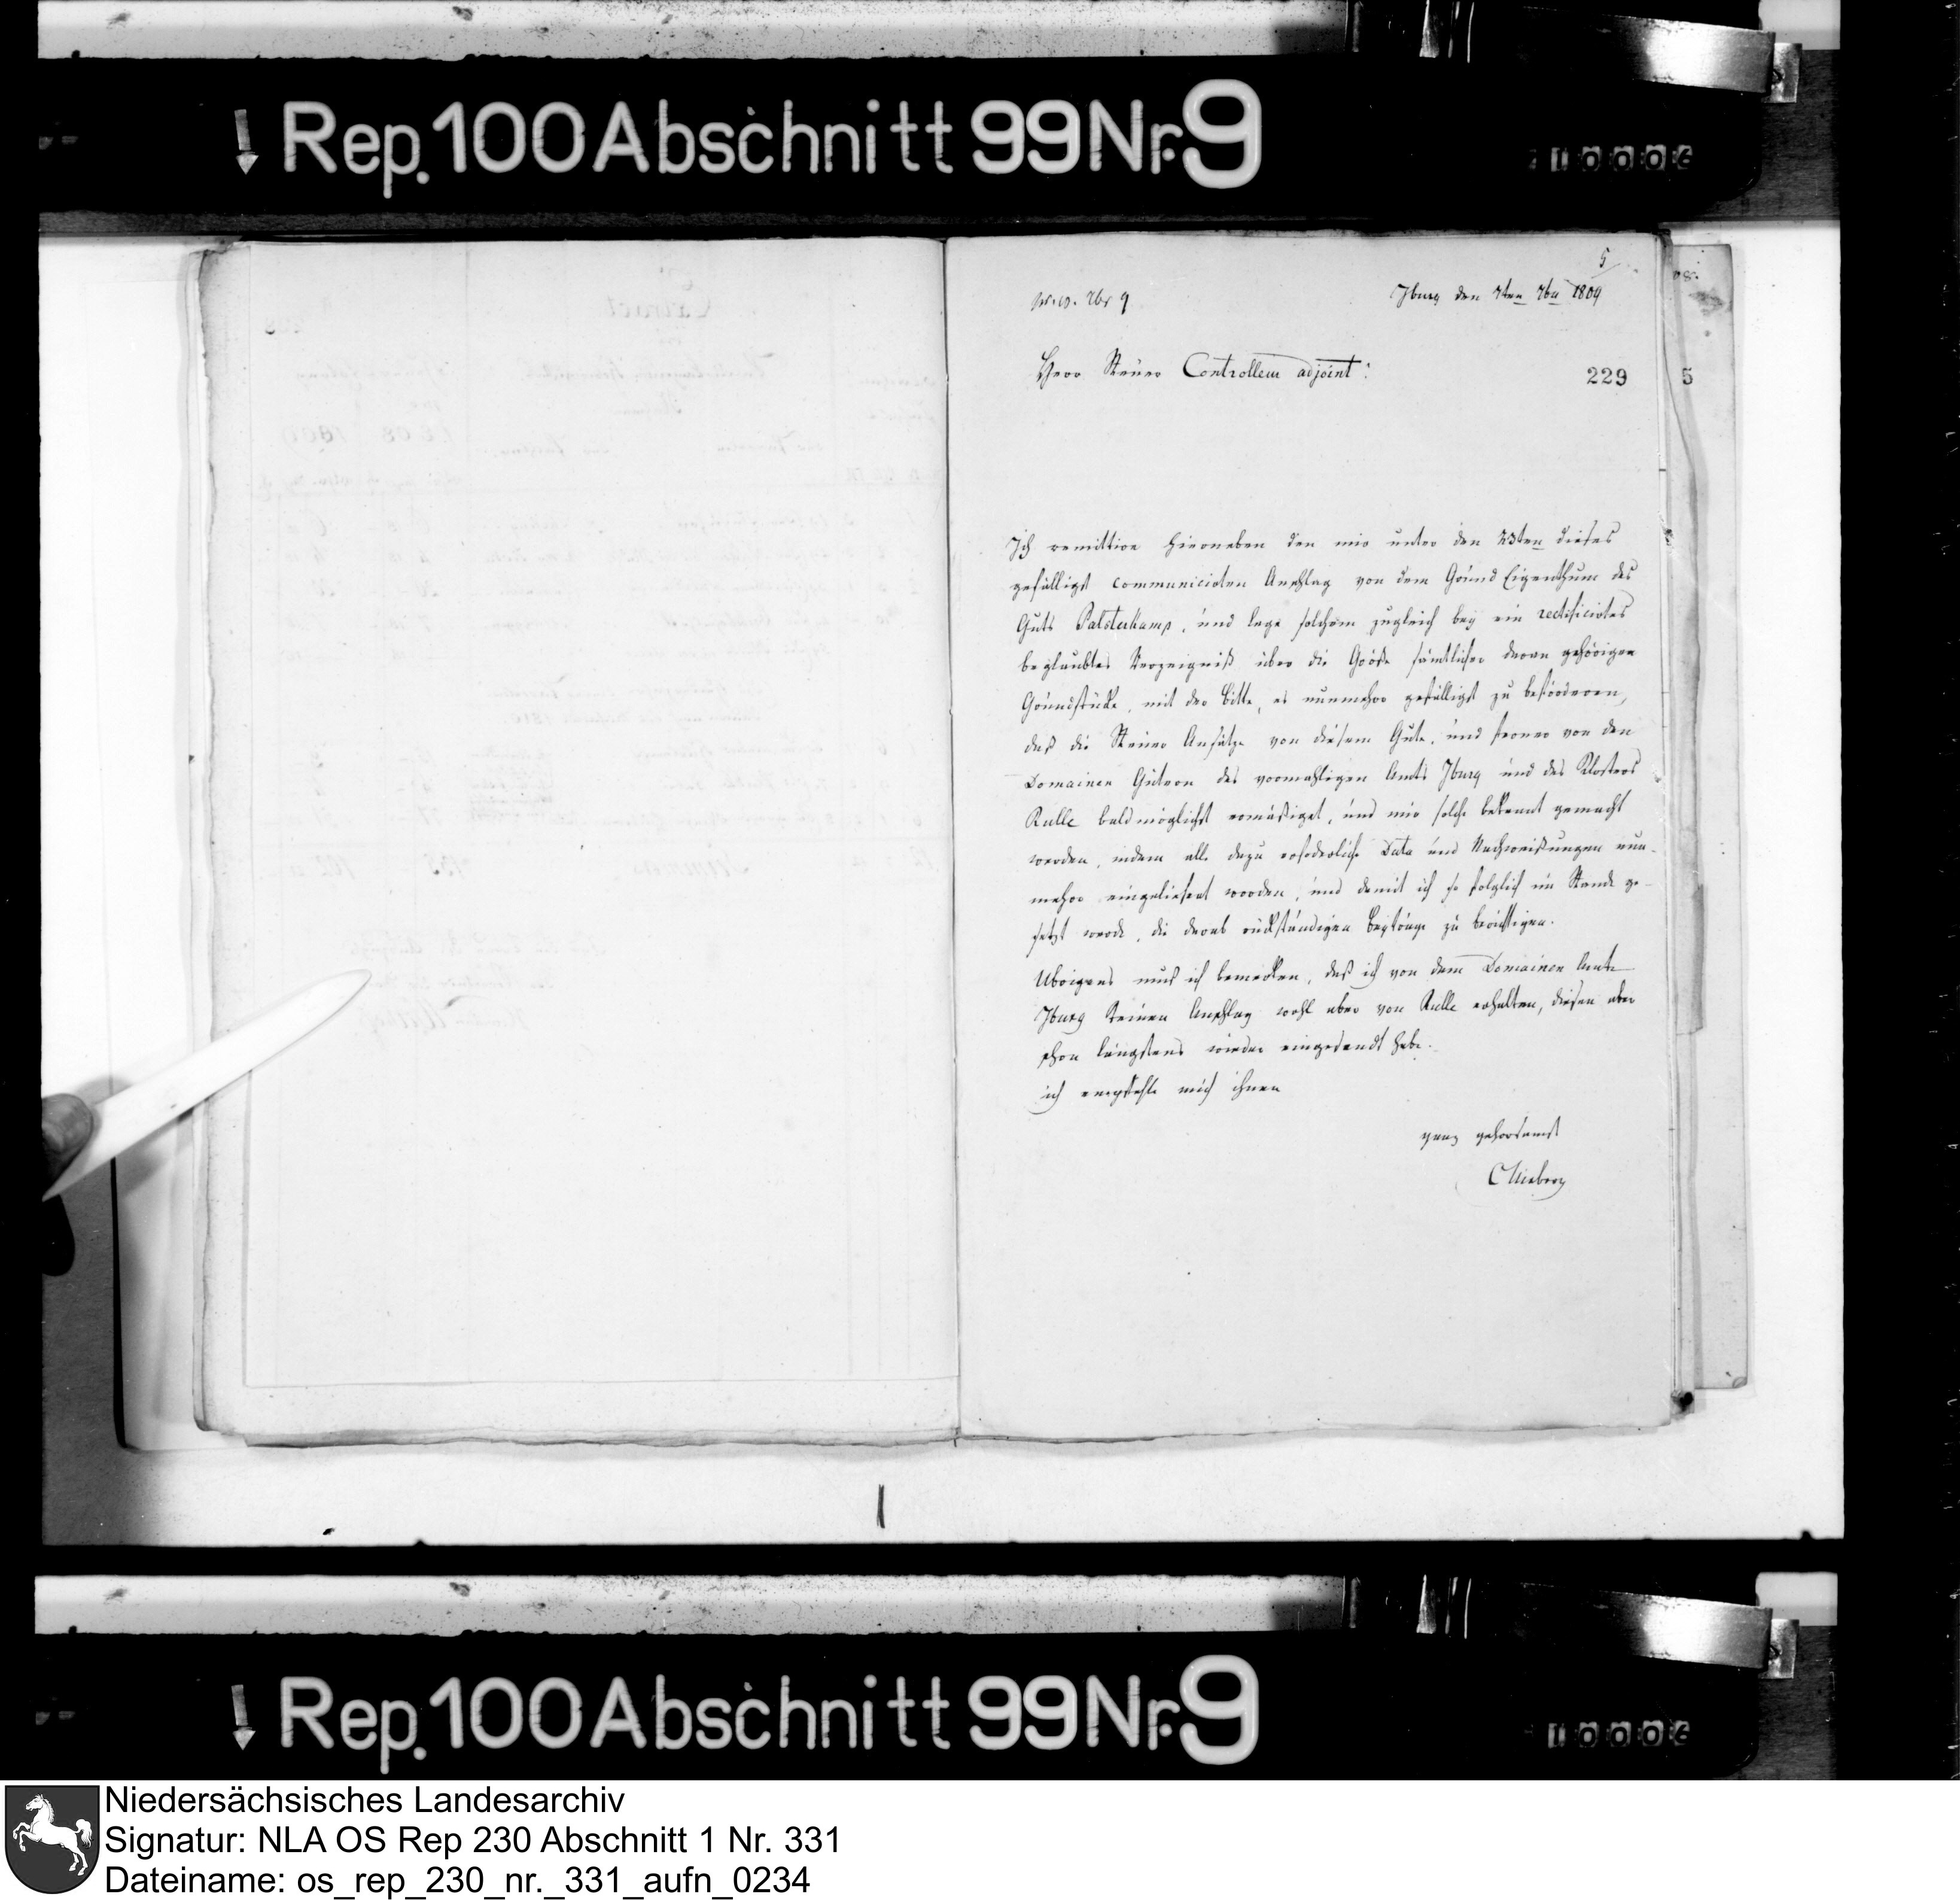 Rep. 100 Abschnitt 99 Nr. 9
10006
5
Iburg den 7ten 7br 1809
Herr Steuer Controlleur adjoint!
229
5
Ich remittire hierneben den mir unter den 23ten dieses
gefälligst communicirten Anschlag von dem Grund Eigenthum des
Guts Palsterkamp, und lege solchem zugleich bey ein rectificirtes
beglaubtes Verzeigniß über die Größe sämtlicher daran gehörigen
Grundstücke, mit der Bitte, es nunmehro gefälligst zu beförderen,
daß die Steuer Ansätze von diesem Gute, und ferner von den
Domainen Gütern des vormahligen Amts Iburg und des Klosters
Rulle baldmöglichst ermäßiget, und mir solche bekannt gemacht
werden, indem alle dazu erforderliche Data und Nachweisungen nun-
mehro eingeliefert worden, und damit ich so folglich im Stande ge-
setzt werde, die derab rückständigen Beyträge zu berichtigen.
Ubrigens muß ich bemerken, daß ich von dem Domainen Amte
Iburg keinen Anschlag wohl aber von Rulle erhalten, diesen aber
schon längstens wieder eingesandt habe.
ich empfehle mich ihnen
ganz gehorsamst
Rep. 100 Abschnitt 99 Nr. 9
10006
Niedersächsisches Landesarchiv
Signatur: NLA OS Rep 230 Abschnitt 1 Nr. 331
Dateiname: os_rep_230_nr._331_aufn_0234